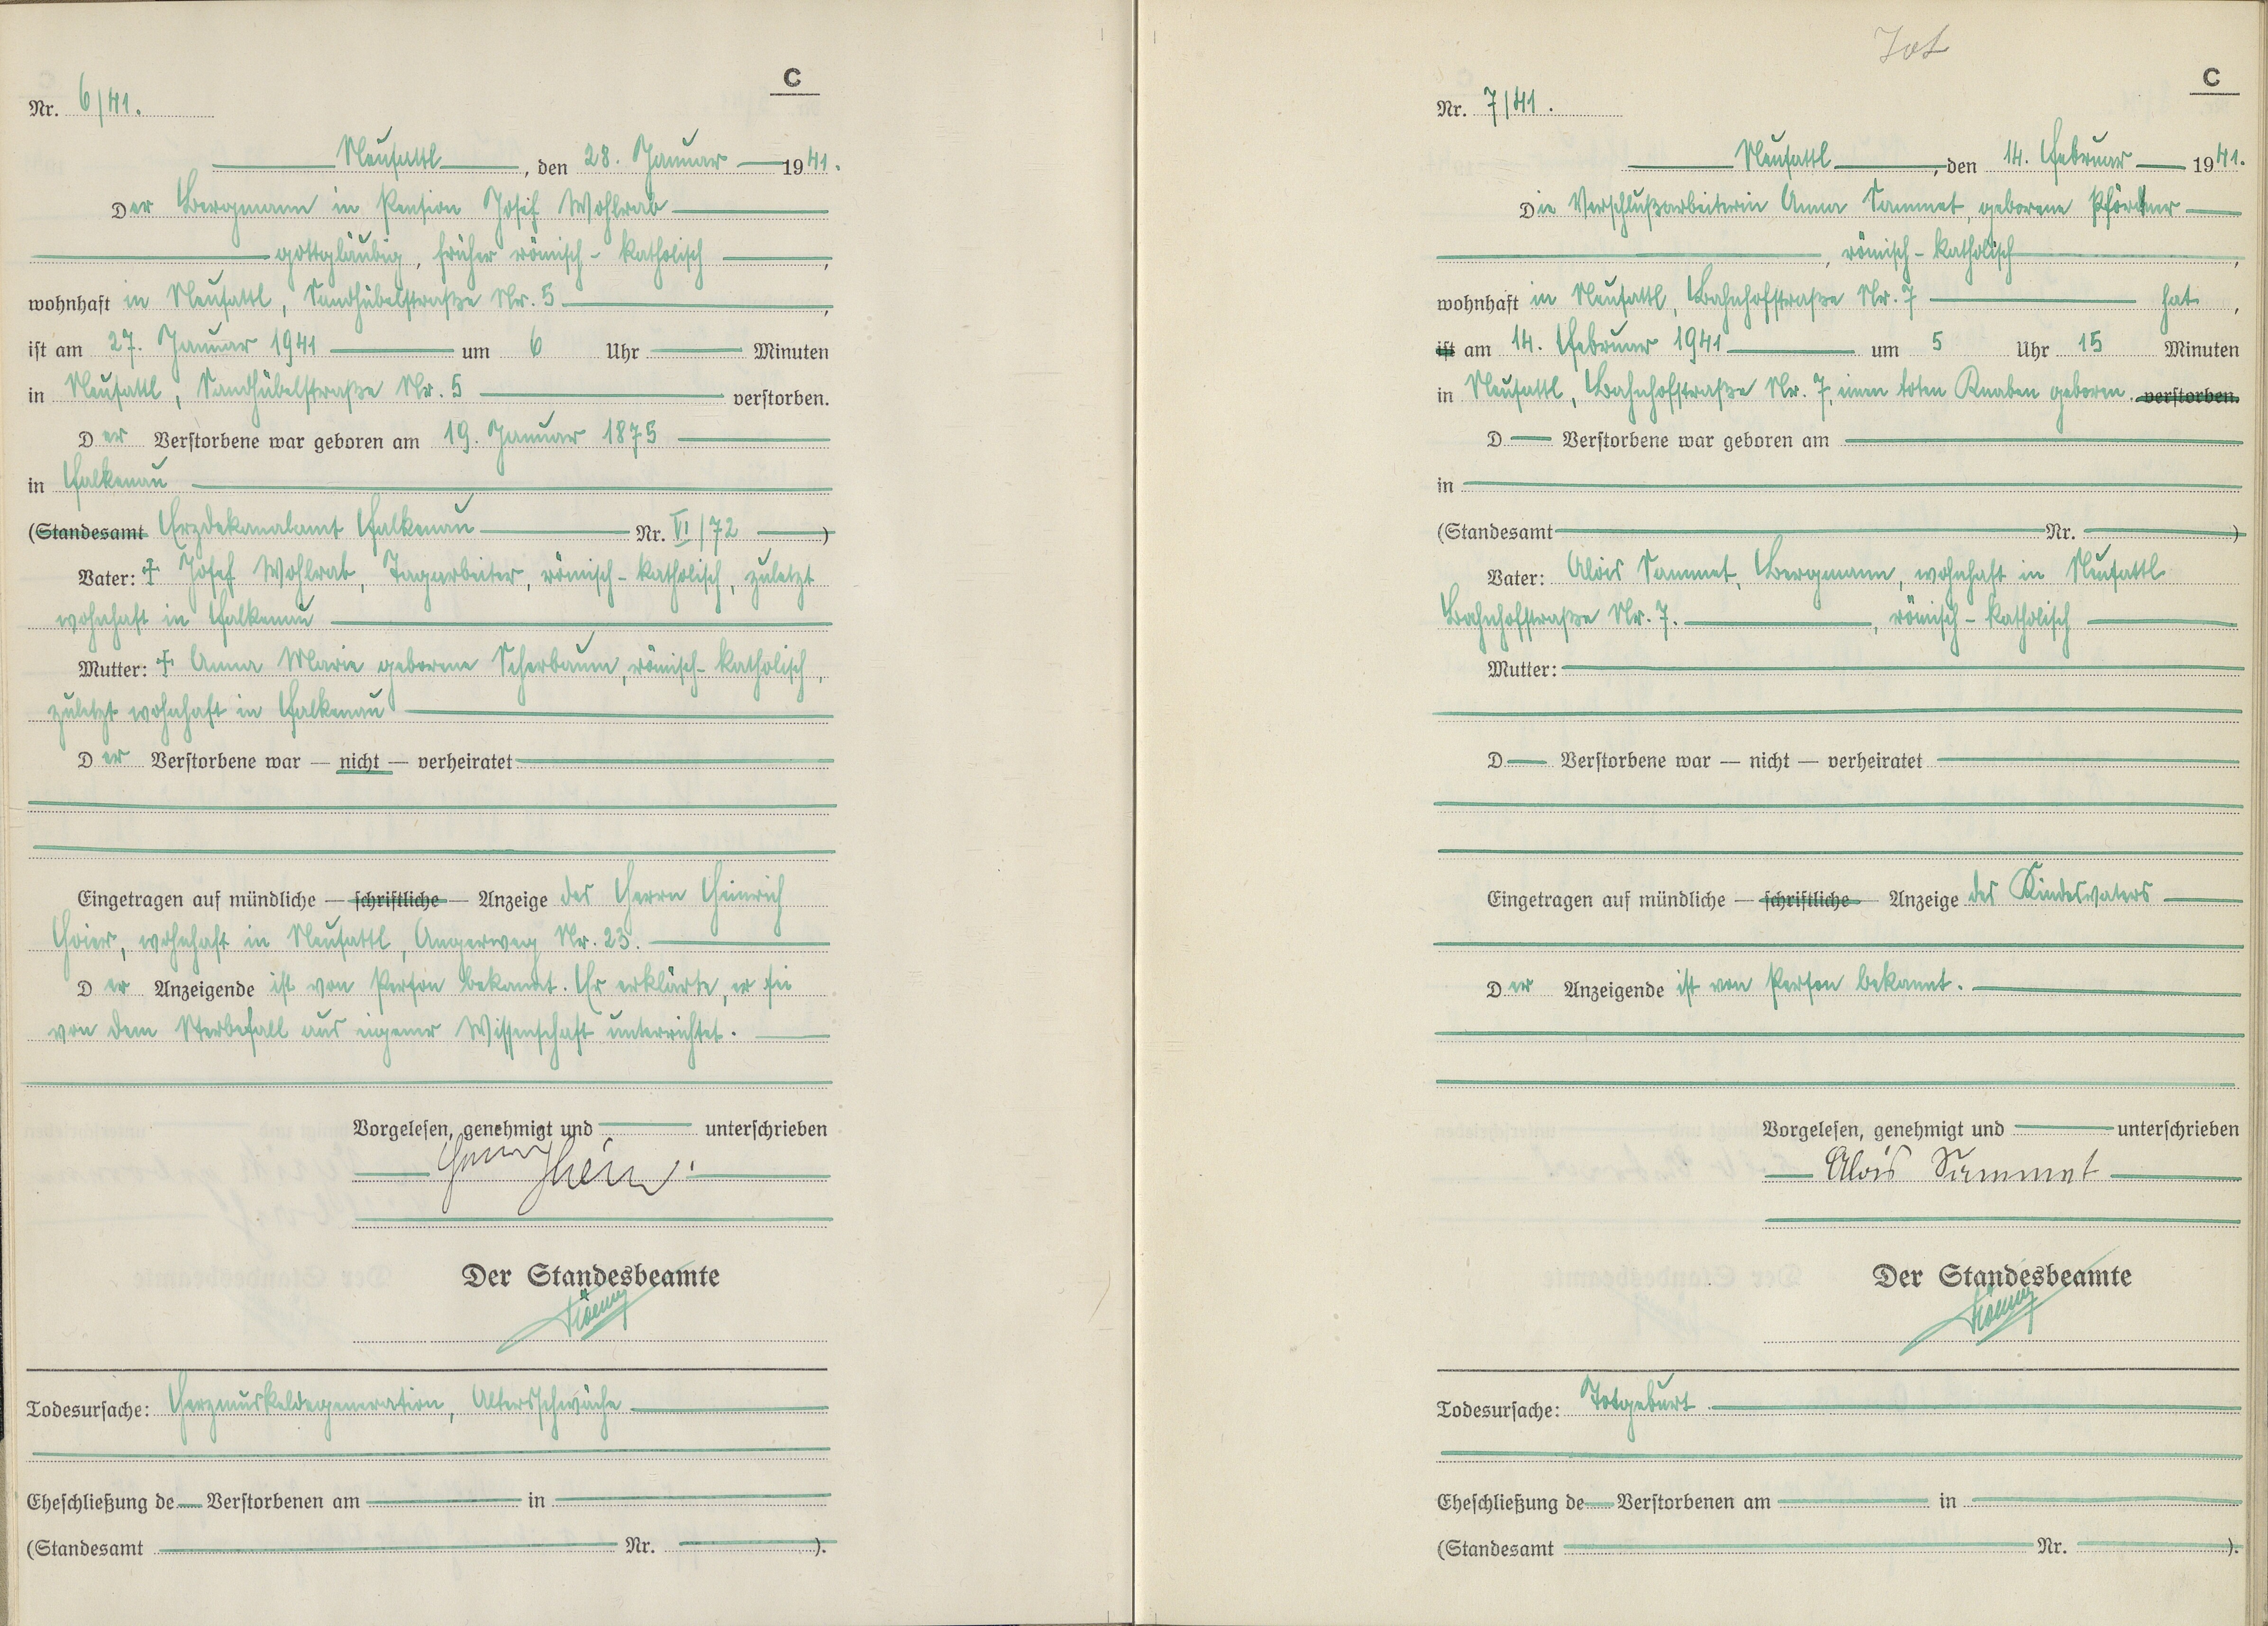 C
Nr. 6/41.
Neusattl, den 28. Januar 1941.
Der Bergmann in Pension Josef Wohlrab
gottgläubig, früher römisch-katholisch,
wohnhaft in Neusattl, Sandhübelstraße Nr. 5,
ist am 27. Januar 1941 um 6 Uhr Minuten
in Neusattl, Sandhübelstraße Nr. 5 verstorben.
Der Verstorbene war geboren am 19. Januar 1875
in Falkenau
(Standesamt Erzdekanalamt Falkenau Nr. VI/72)
Vater: + Josef Wohlrab, Tagarbeiter, römisch-katholisch, zuletzt
wohnhaft in Falkenau
Mutter: + Anna Marie geborene Scherbaum, römisch-katholisch,
zuletzt wohnhaft in Falkenau
Der Verstorbene war — nicht — verheiratet
Eingetragen auf mündliche — schriftliche — Anzeige des Herrn Heinrich
Hoier, wohnhaft in Neusattl, Angerweg Nr. 23.
Der Anzeigende ist von Person bekannt. Er erklärte, er sei
von dem Sterbefall aus eigener Wissenschaft unterrichtet.
Vorgelesen, genehmigt und unterschrieben
Der Standesbeamte
Todesursache: Herzmuskeldegeneration, Altersschwäche
Eheschließung de Verstorbenen am in
(Standesamt Nr. ).
Tot
C
Nr. 7/41.
Neusattl, den 14. Februar 1941.
Die Verschlußarbeiterin Anna Sammet, geborene Pfördner
, römisch-katholisch,
wohnhaft in Neusattl, Bahnhofstraße Nr. 7 hat,
ist am 14. Februar 1941 um 5 Uhr 15 Minuten
in Neusattl, Bahnhofstraße Nr. 7, einen toten Knaben geboren. verstorben.
D Verstorbene war geboren am
in
(Standesamt Nr. )
Vater: Alois Sammet, Bergmann, wohnhaft in Neusattl
Bahnhofstraße Nr. 7., römisch-katholisch
Mutter:
D Verstorbene war — nicht — verheiratet
Eingetragen auf mündliche — schriftliche — Anzeige des Kindesvaters
Der Anzeigende ist von Person bekannt.
Vorgelesen, genehmigt und unterschrieben
Alois Sammet
Der Standesbeamte
Todesursache: Totgeburt
Eheschließung de Verstorbenen am in
(Standesamt Nr. ).